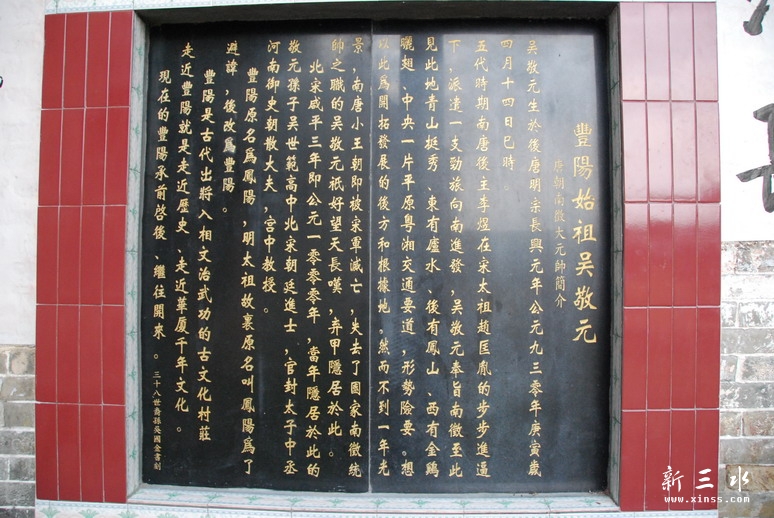 豐陽始祖吳敬元
唐朝南徵大元帥簡介
吳敬元生於後唐明宗長興元年公元九三零年庚寅歲
四月十四日巳時。
五代時期南唐後主李煜在宋太祖趙匡胤的步步進逼
下，派遣一支勁旅向南進發，吳敬元奉旨南徵至此
見此地青山挺秀、東有廬水、後有鳳山、西有金鷄
曬翅，中央一片平原粵湘交通要道，形勢險要。想
以此爲開拓發展的後方和根據地，然而不到一年光
景，南唐小王朝即被宋軍滅亡，失去了國家南徵統
帥之職的吳敬元祇好望天長嘆，弃甲隱居於此。
北宋咸平三年即公元一零零零年，當年隱居於此的
敬元孫子吳世範高中北宋朝廷進士，官封太子中丞
河南御史朝散大夫、宮中教授。
豐陽原名爲鳳陽，明太祖故裏原名叫鳳陽爲了
避諱，後改爲豐陽。
豐陽是古代出將入相文治武功的古文化村莊
走近豐陽就是走近歷史、走近華厦千年文化。
現在的豐陽承前啓後、繼往開來。三十八世裔孫吳國金書刻
新三水
www.xinss.com